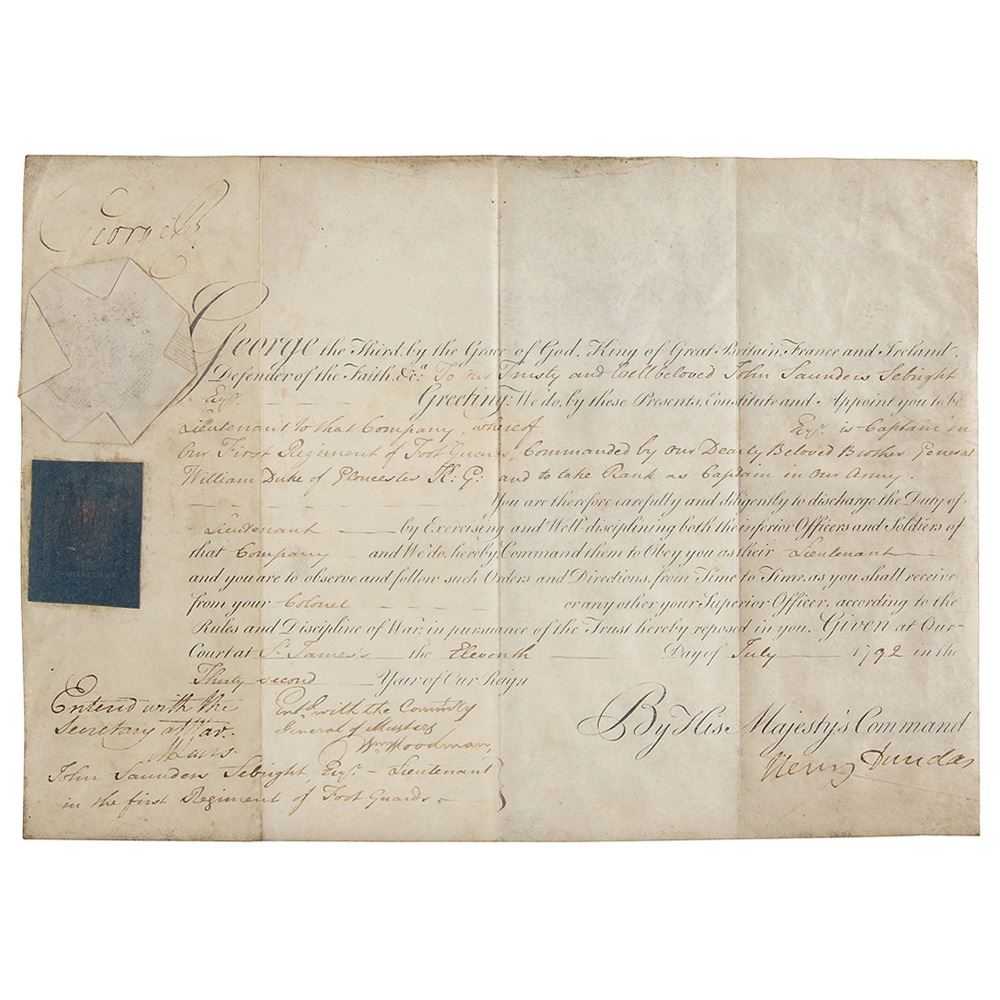 George R
George the Third, by the Grace of God, King of Great Britain, France and Ireland,
Defender of the Faith, &c.a To our Trusty and Wellbeloved John Saunders Sebright
Esqr. Greeting: We do, by these Presents, Constitute and Appoint you to be
Lieutenant to that Company, whereof Esqr. is Captain in
Our First Regiment of Foot Guards, Commanded by Our Dearly Beloved Brother General
William Duke of Gloucester K: G: and to take Rank as Captain in Our Army.
You are therefore carefully and diligently to discharge the Duty of
Lieutenant by Exercising and Well disciplining both the inferior Officers and Soldiers of
that Company and We do, hereby, Command them to Obey you as their Lieutenant
and you are to observe and follow such Orders and Directions, from Time to Time, as you shall receive
from your Colonel or any other your Superior Officer, according to the
Rules and Discipline of War, in pursuance of the Trust hereby reposed in you. Given at Our
Court at St. James's the Eleventh Day of July 1792 in the
Thirty second Year of Our Reign
By His Majesty's Command
Henry Dundas
Entered with the
Secretary at War.
M Lewis.
Entd. with the Commiss'y
General of Musters
Wm. Woodman,
John Saunders Sebright, Esqr. - Lieutenant
in the first Regiment of Foot Guards.